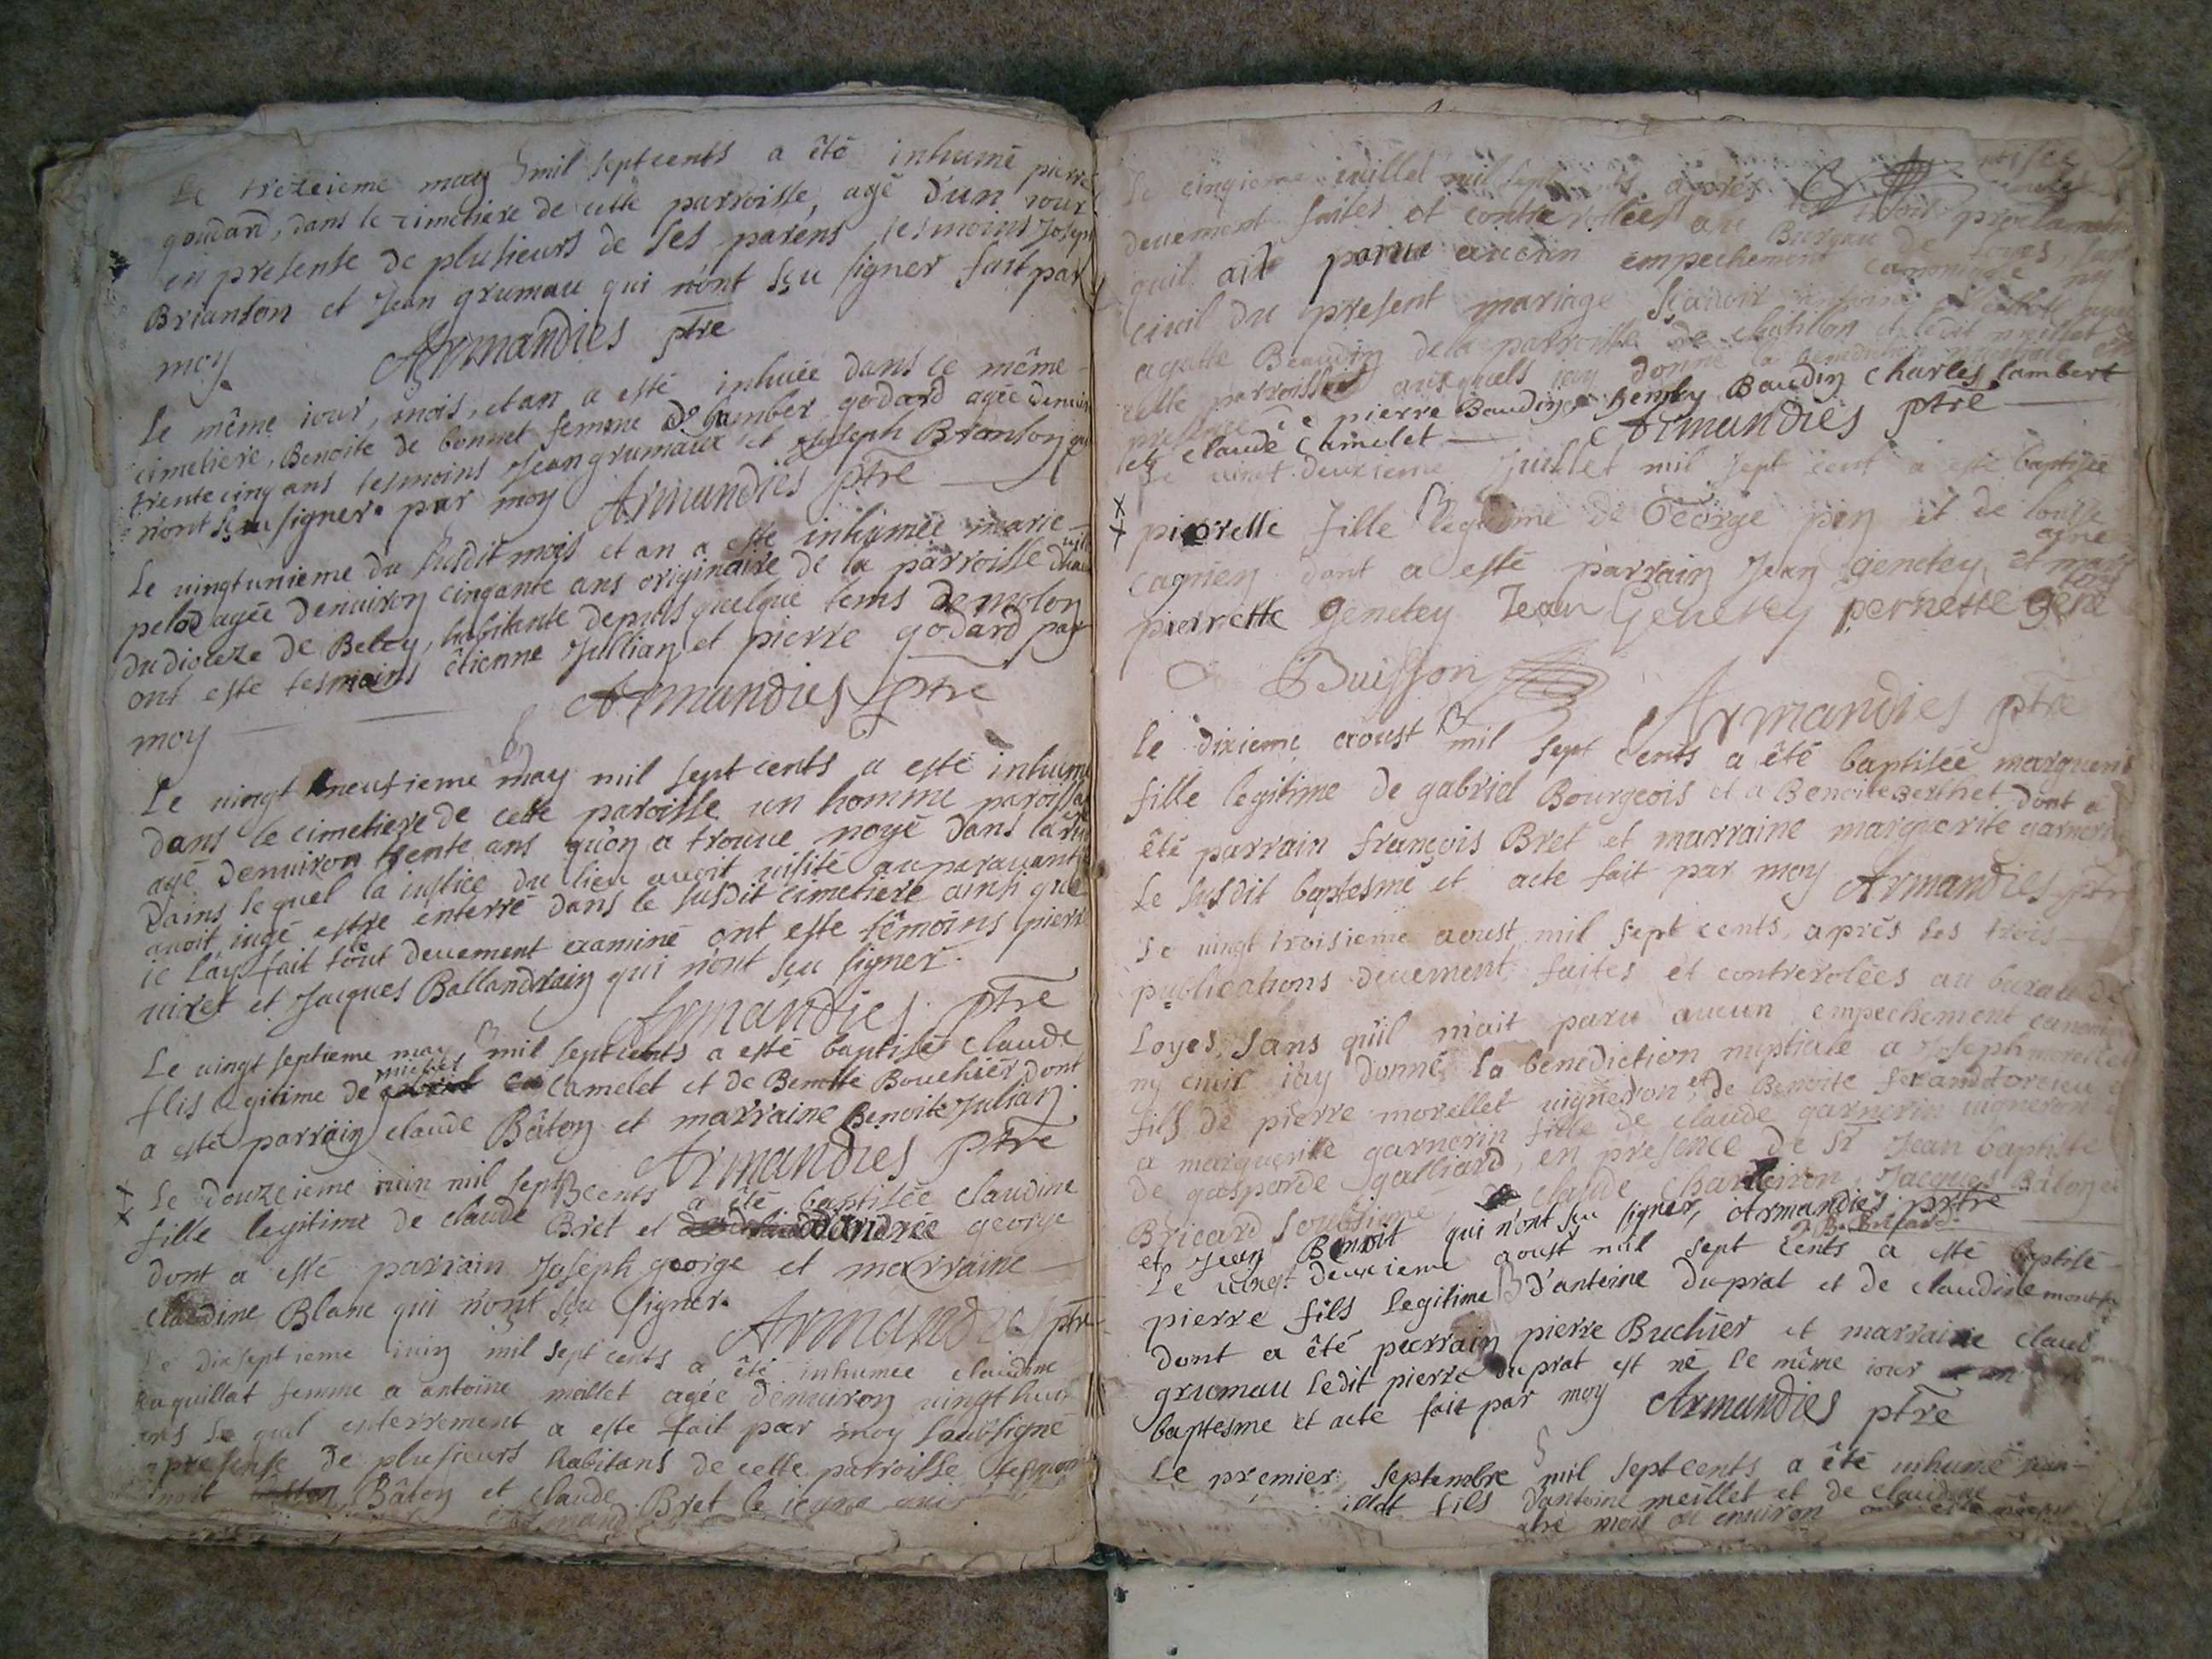 Le trezeieme may mil septcents a êté inhumé pierre
goudard, dans le cimetiere de cette parroisse, agé d'un iour
en presente de plusieurs de ses parens tesmoins Joseph
Brianson et Jean grumau qui n'ont sçu signer fait par
moy Armandies ptre
Le même iour, mois, et an a esté inhuée dans le même
cimetiere, Benoite de bonnet femme de lamber godard agée denuiron
trente cinq ans tesmoins Jean grumaux et Joseph Brianson qui
n'ont sçu signer. par moy Armandies ptre
Le uingtunieme du susdit mois et an a esté inhumée marie
pelod agée denuiron cinqante ans originaire de la parroisse
du dioceze de Beley, habitante depuis quelque tems de molon
ont esté tesmoins êtienne Jullian et pierre godard par
moy Armandies ptre
Le uingt neufieme may mil septcents a esté inhumé
dans le cimetiere de cette paroisse un homme paroissant
agé denuiron trente ans qu'on a trouué noyé dans la
dains lequel la iustice du lieu auoit uisité auparauant et
auoit iugé estre enterré dans le susdit cimetiere ainsi que
ie l'ay fait tout deuement examiné ont esté têmoins pierre
uiret et Jacques Ballandrain qui n'ont sçu signer.
Armandies ptre
Le uingt septieme may mil septcents a esté baptisé claude
flis legitime de michel camelet et de Benoite Bouchier dont
a esté parrain claude Bâton et marraine Benoite Julian
Armandies ptre
Le douzeieme iuin mil septcents a êté baptisée claudine
fille legitime de claude Bret et d'andrée george
dont a esté parrain Joseph george et marraine
claudine Blanc qui n'ont sçu signer. Armandies ptre
Le dixseptieme iuin mil sept cents a êté inhumée claudine
femme a antoine meillet agée denuiron uingt huit
ans le quel enterrement a esté fait par moy soubsigné
presense de plusieurs habitans de cette parroisse
Bâton et claude Bret le ieune
Le cinqieme iuillet mil sept cents aprés les trois proclamations
deuement faites et controrollées au Bureau de Loyes sans
quil ait parue aucun empechement canonique ny
ciuil du present mariage sçauoir
agathe Beaudin de la parroisse de chatillon et ledit meillet
cette parroisse ausquels iay donné la benediction nuptiale en
presence de pierre Baudin, Baudin charles lambert
et claude camelet Armandies ptre
Le uingt deuxieme Juillet mil sept cent a esté baptisée
pierrette fille legitime de George pin et de louise
cagnien dont a esté parrain Jean genetey et marraine
pierrette genetey Jean Genetey pernette gene
Buisson
Armandies ptre
le dixieme aoust mil sept cents a êté baptisée marguerite
fille legitime de gabriel Bourgeois et a Benoite Berthet dont a
êté parrain françois Bret et marraine marguerite garnerin
Le susdit baptesme et acte fait par moy Armandies ptre
Le uingt troisieme aoust mil sept cents, aprés les trois
publications deuement faites et controrolées au bureau de
Loyes, sans qu'il m'ait paru aucun empechement canonique
ny ciuil iay donné la benediction nuptiale a Joseph morellet
fils de pierre morellet uigneron, et de Benoite
a marguerite garnerin fille de claude garnerin uigneron et
de gasparde galliard, en presence de sr Jean baptiste
Bricard soubsigné, claude chanteiron, Jacques Bâton
et Jean Benoit qui n'ont sçu signer, Armandies prtre
J. B. Bricard.
Le uingt deuxieme aoust mil sept cents a esté baptisé
pierre fils legitime d'antoine duprat et de claudine
dont a êté parrain pierre Buchier et marraine claudine
grumau ledit pierre duprat est né le même iour
baptesme et acte fait par moy Armandies ptre
Le premier septembre mil septcents a êté inhumé
fils d'antoine meillet et de claudine
mois ou enuiron